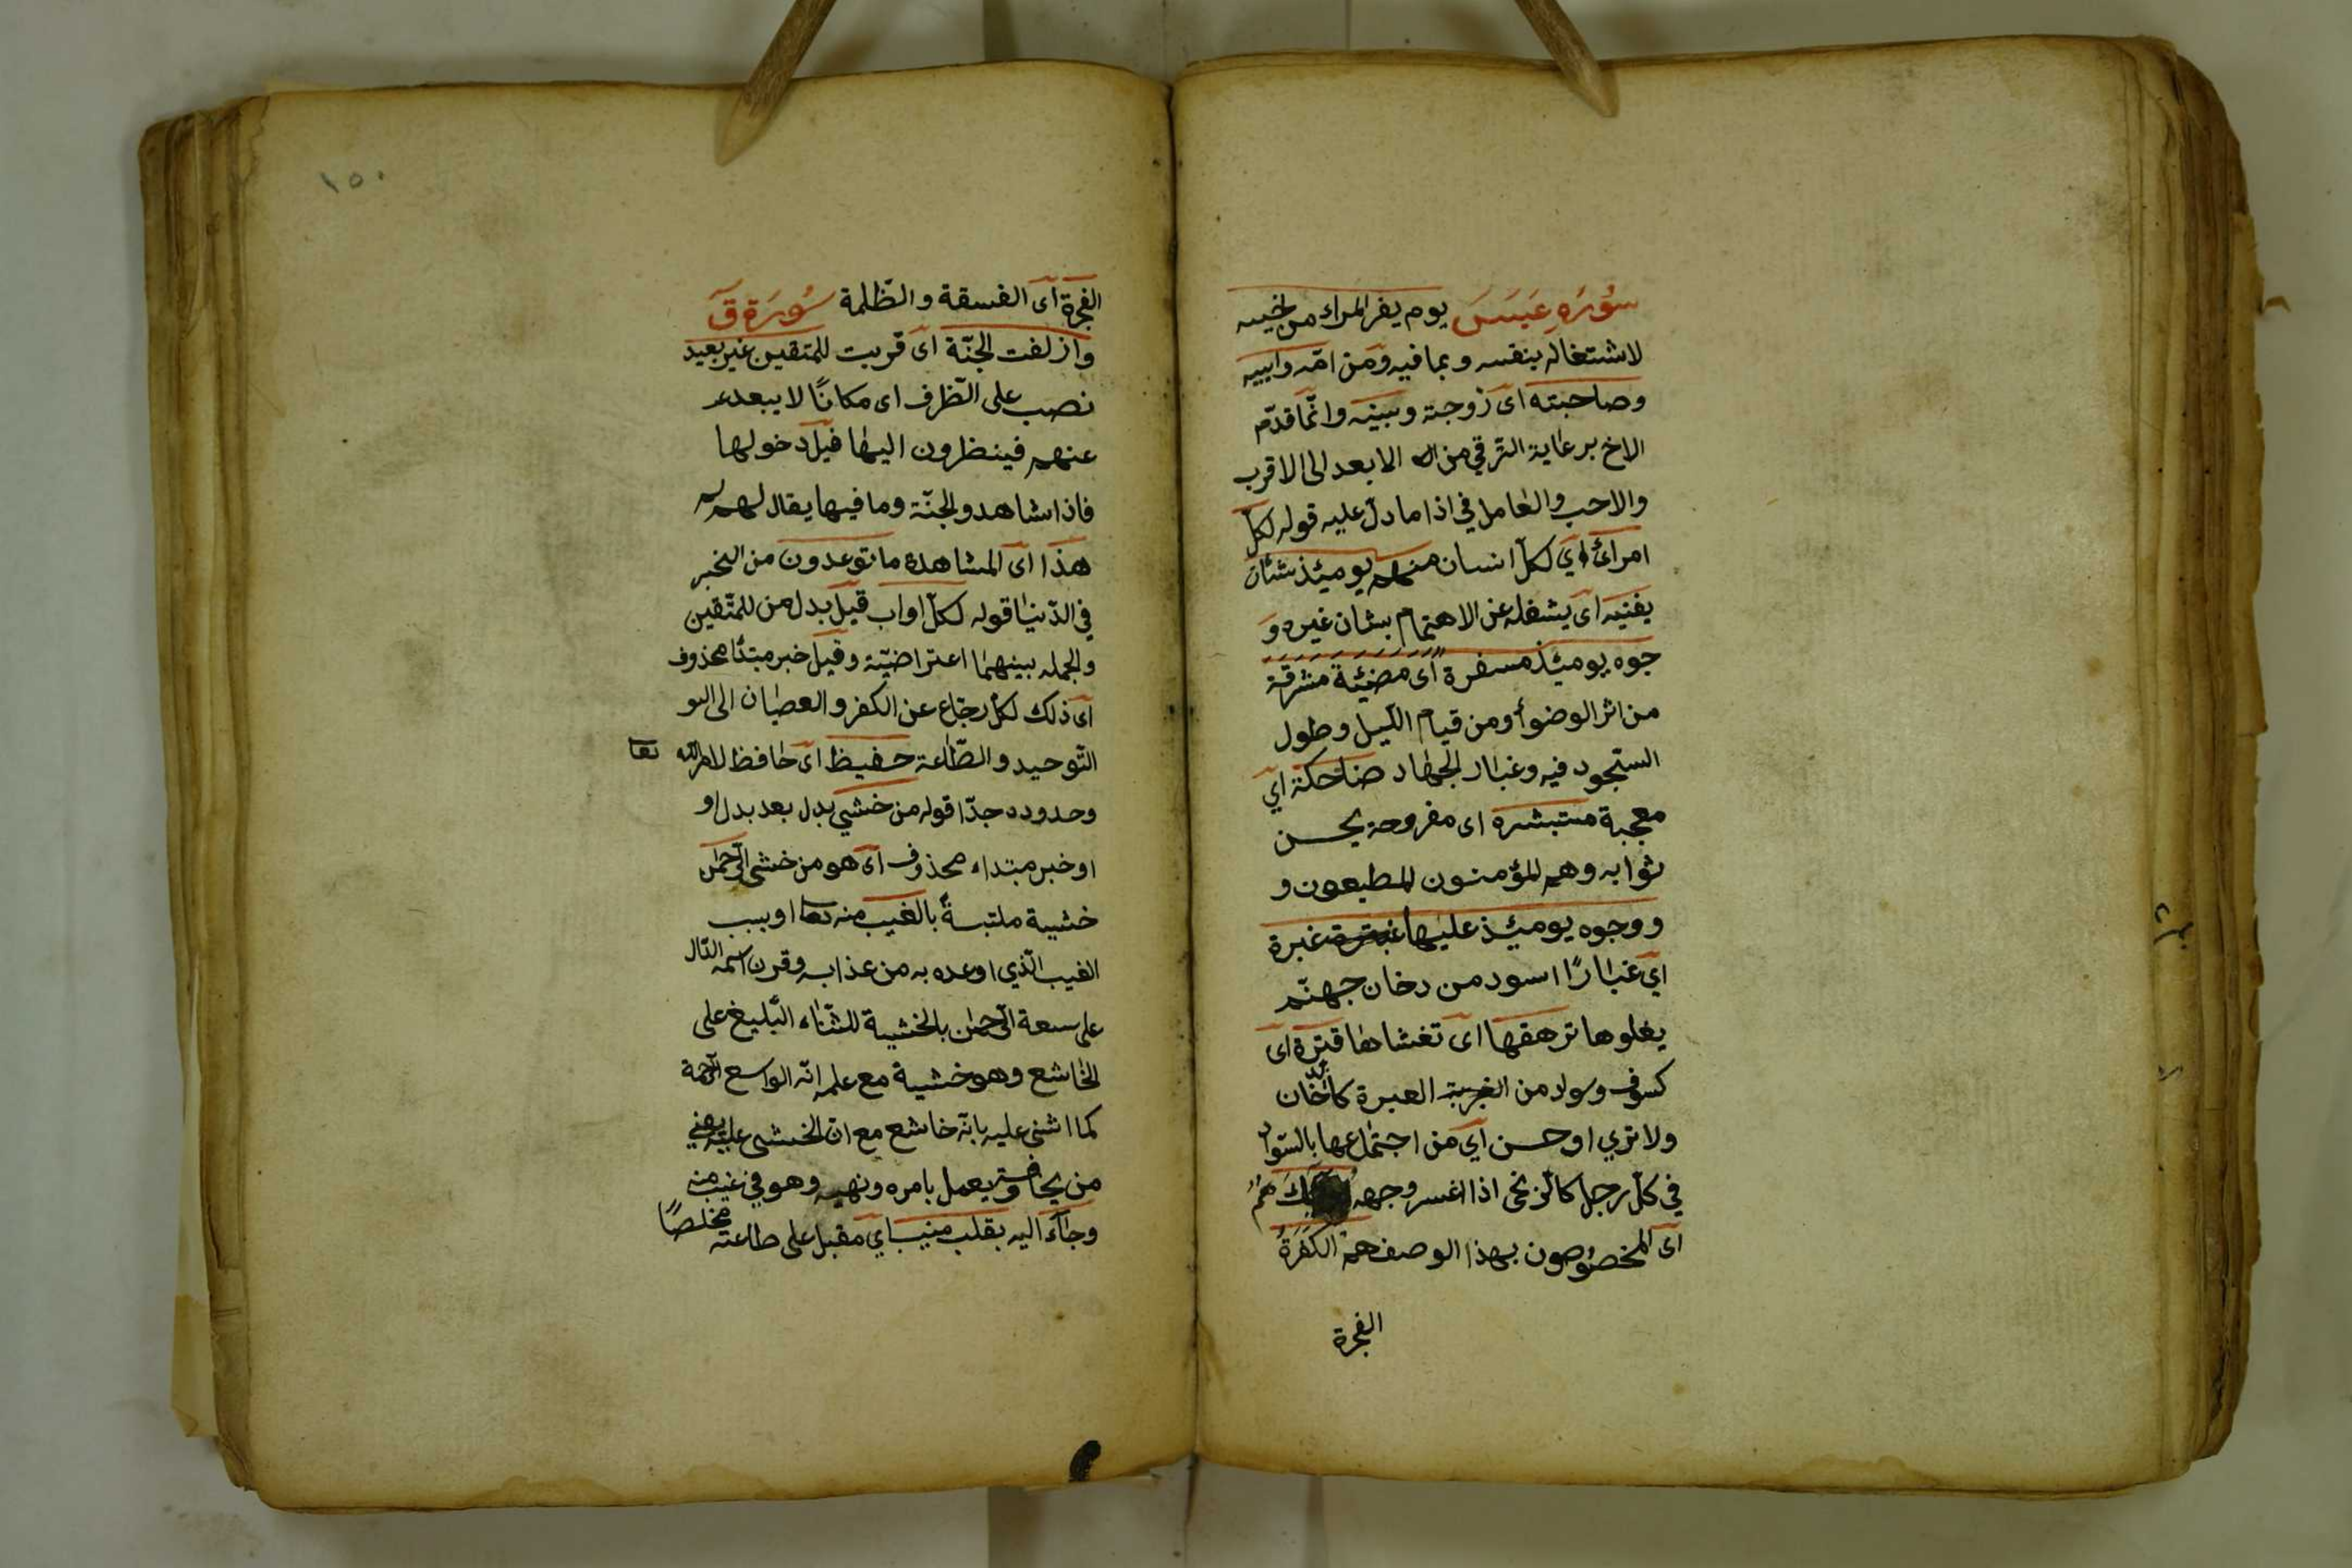 سُورَةِ عَبَسَ يوم يفر المراء من اخيه
لاشتغاله بنفسه وبما فيه ومن امّه وابيه
وصاحبته اى زوجة وبنيه وانّما قدّم
الاخ برعاية الترقي من الابعد الى الاقرب
والاحب والعامل في اذا ما دلّ عليه قوله لكلّ
امرائ اي لكلّ انسان منهم يومئذ شئان
يغنيه اى يشغله عن الاهتمام بشان غيره و
جوه يومئذ مسفرة اى مضيئة مشرقة
من اثر الوضوأ ومن قيام اللّيل وطول
السّجود فيه وغبار الجهاد ضاحكة اي
معجبة مستبشره اى مفروحة بحسن
ثوابه وهم المؤمنون المطيعون و
ووجوه يومئذ عليها غبرة
اي غبارًا اسود من دخان جهنّم
يعلوها ترهقها اى تغشاها قترة اى
كسوف وسواد من العبرة كالدّخان
ولا تري اوحسن اي من اجتماعها بالسّواد
في كلّ رجل كالزنجى اذا اغبر وجهه هُمُ
اى المخصُوصون بهذا الوصف همُ الكَفَرَةُ
الفجرة
١٥٠
الفجرة اى الفسقة والظّلمة سُورَة قَ
وازلفت الجنّة اى قربت للمتقين غير بعيد
نصب على الظّرف اى مكانًا لا يبعد
عنهم فينظرون اليها قبل دخولها
فاذا شاهدو الجنّة وما فيها يقال لهم
هذا اى المشاهدة ما توعدون من الخبر
في الدّنيا قوله لكلّ اواب قيل بدل من للمتّقين
والجمله بينهما اعتراضيّة وقيل خبر مبتدأ محذوف
اى ذلك لكلّ رجّاع عن الكفر والعصيان الى
التّوحيد والطّاعة حفيظ اى حافظ لامر اللّه تعا
وحدوده جدّا قوله من خشي بدل بعد بدل او
او خبر مبتداء محذوف اى هو من خشى الرّحمن
خشية ملتبسةً بالغيب منه تعا او بسبب
الغيب الّذي اوعده به من عذابه وقرن اسمه الدّال
على سعة الرّحمن بالخشية للثّناء البّليغ على
الخاشع وهو خشية مع علمه انّه الواسع الرّحمة
كما اثنى عليه بانّه خاشع مع انّ الخشى عليه يعني
من يخاف ويعمل بامره ونهيه وهو في غيب منه
وجاء اليه بقلب منيب اي مقبل على طاعته مخلصًا